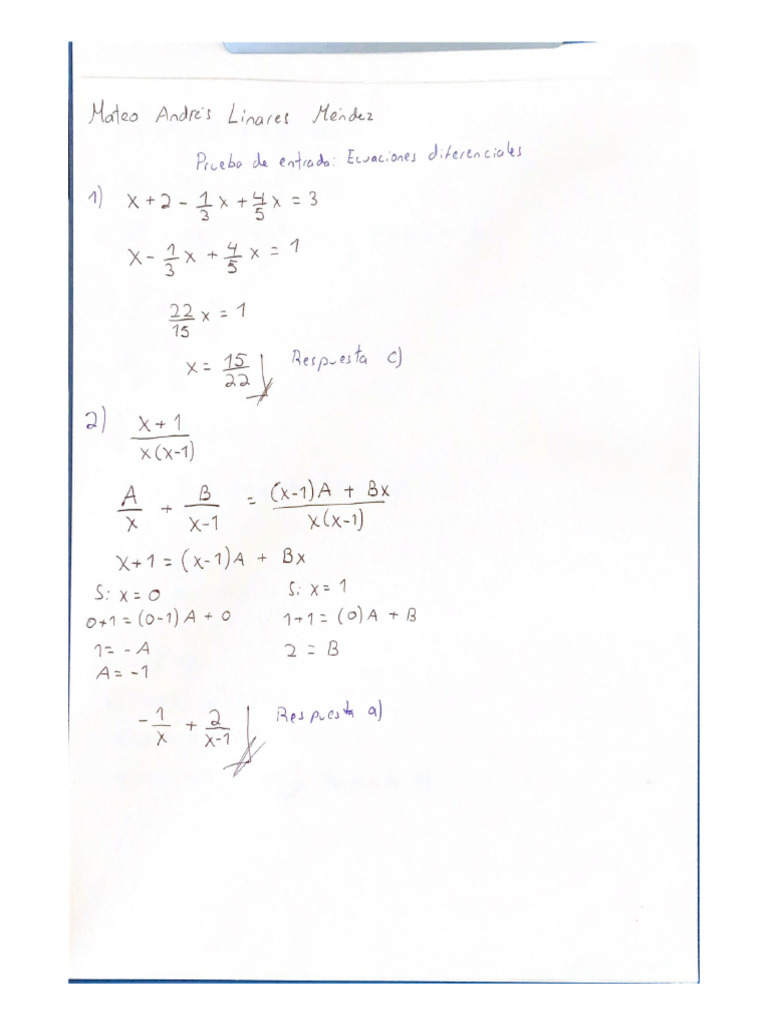 Mateo Andrés Linares Méndez
Prueba de entrada: Ecuaciones diferenciales
1) x + 2 - 1/3 x + 4/5 x = 3
x - 1/3 x + 4/5 x = 1
22/15 x = 1
x = 15/22 Respuesta c)
2) x + 1 / x(x-1)
A/x + B/x-1 = (x-1)A + Bx / x(x-1)
x+1 = (x-1)A + Bx
Si x = 0 Si x = 1
0+1 = (0-1)A + 0 1+1 = (0)A + B
1 = -A 2 = B
A = -1
-1/x + 2/x-1 Respuesta a)